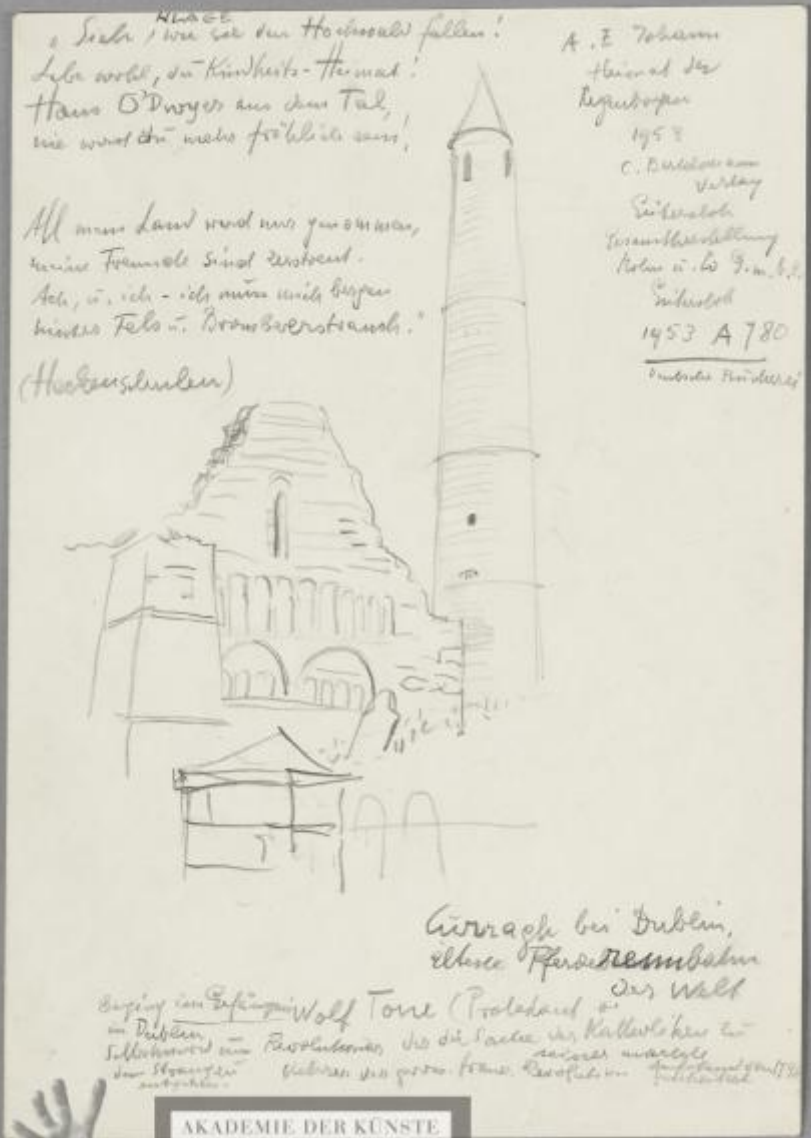 KLAGE
„Sieh, wie sie den Hochwald fällen!
Lebe wohl, du Kindheits-Heimat!
Hans O'Dwyer aus dem Tal,
nie wirst du mehr fröhlich sein!
All mein Land ward mir genommen,
meine Freunde sind zerstreut.
Ach, u. ich - ich muss mich bergen
hinter Fels u. Brombeerstrauch."
(Heckenschulen)
A. E Johann
Heimat der
Regenbogen
1953
C. Bertelsmann
Verlag
Gütersloh
Gesamtherstellung
Mohn u. Co G.m.b.H.
Gütersloh
1953 A 780
Deutsche Bücherei
Curragh bei Dublin,
älteste Pferderennbahn
der Welt
Beging im Gefängnis Wolf Tone (Protestant
in Dublin
Selbstmord um Revolutionär der die Sache der Katholiken zu
seiner machte
dem Strang zu
Ideen der franz. Revolution
AKADEMIE DER KÜNSTE